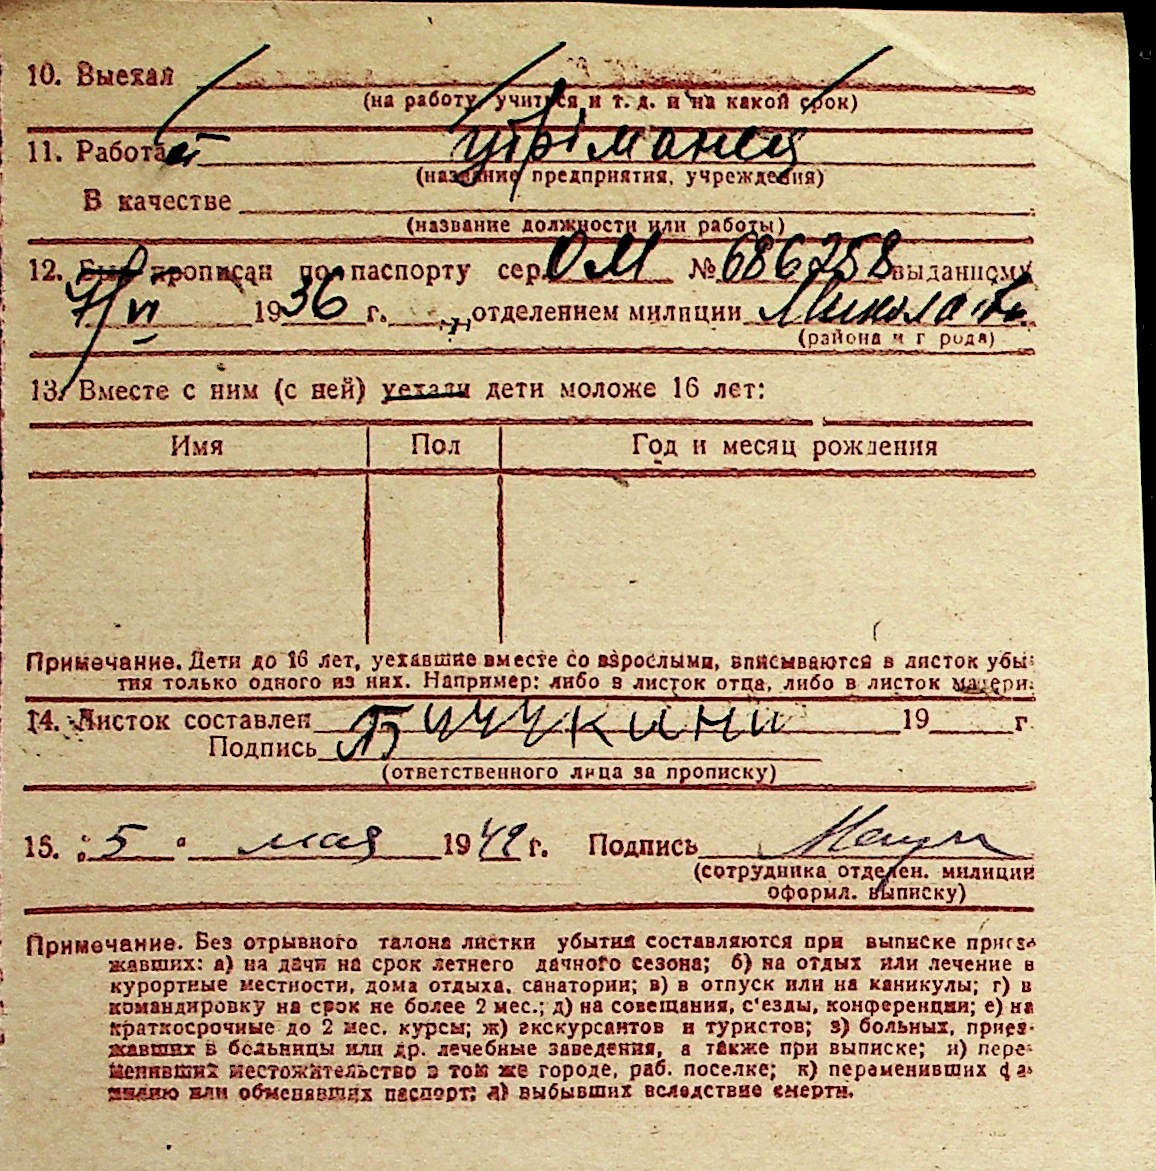 10. Выехал
(на работу, учиться и т. д. и на какой срок)
11. Работает утриманец
(название предприятия, учреждения)
В качестве
(название должности или работы)
12. Был прописан по паспорту сер. ОМ № 686758 выданному
7/VI 1936 г. отделением милиции
(района и города)
13. Вместе с ним (с ней) уехали дети моложе 16 лет:
Имя Пол Год и месяц рождения
Примечание. Дети до 16 лет, уехавшие вместе со взрослыми, вписываются в листок убы-
тия только одного из них. Например: либо в листок отца, либо в листок матери.
14. Листок составлен 19 г.
Подпись
(ответственного лица за прописку)
15. "5" мая 1942 г. Подпись
(сотрудника отделен. милиции
оформл. выписку)
Примечание. Без отрывного талона листки убытия составляются при выписке приез-
жавших: а) на дачи на срок летнего дачного сезона; б) на отдых или лечение в
курортные местности, дома отдыха, санатории; в) в отпуск или на каникулы; г) в
командировку на срок не более 2 мес.; д) на совещания, с'езды, конференции; е) на
краткосрочные до 2 мес. курсы; ж) экскурсантов и туристов; з) больных, приез-
жавших в больницы или др. лечебные заведения, а также при выписке; и) пере-
менивших местожительство в том же городе, раб. поселке; к) переменивших фа-
милию или обменявших паспорт; л) выбывших вследствие смерти.